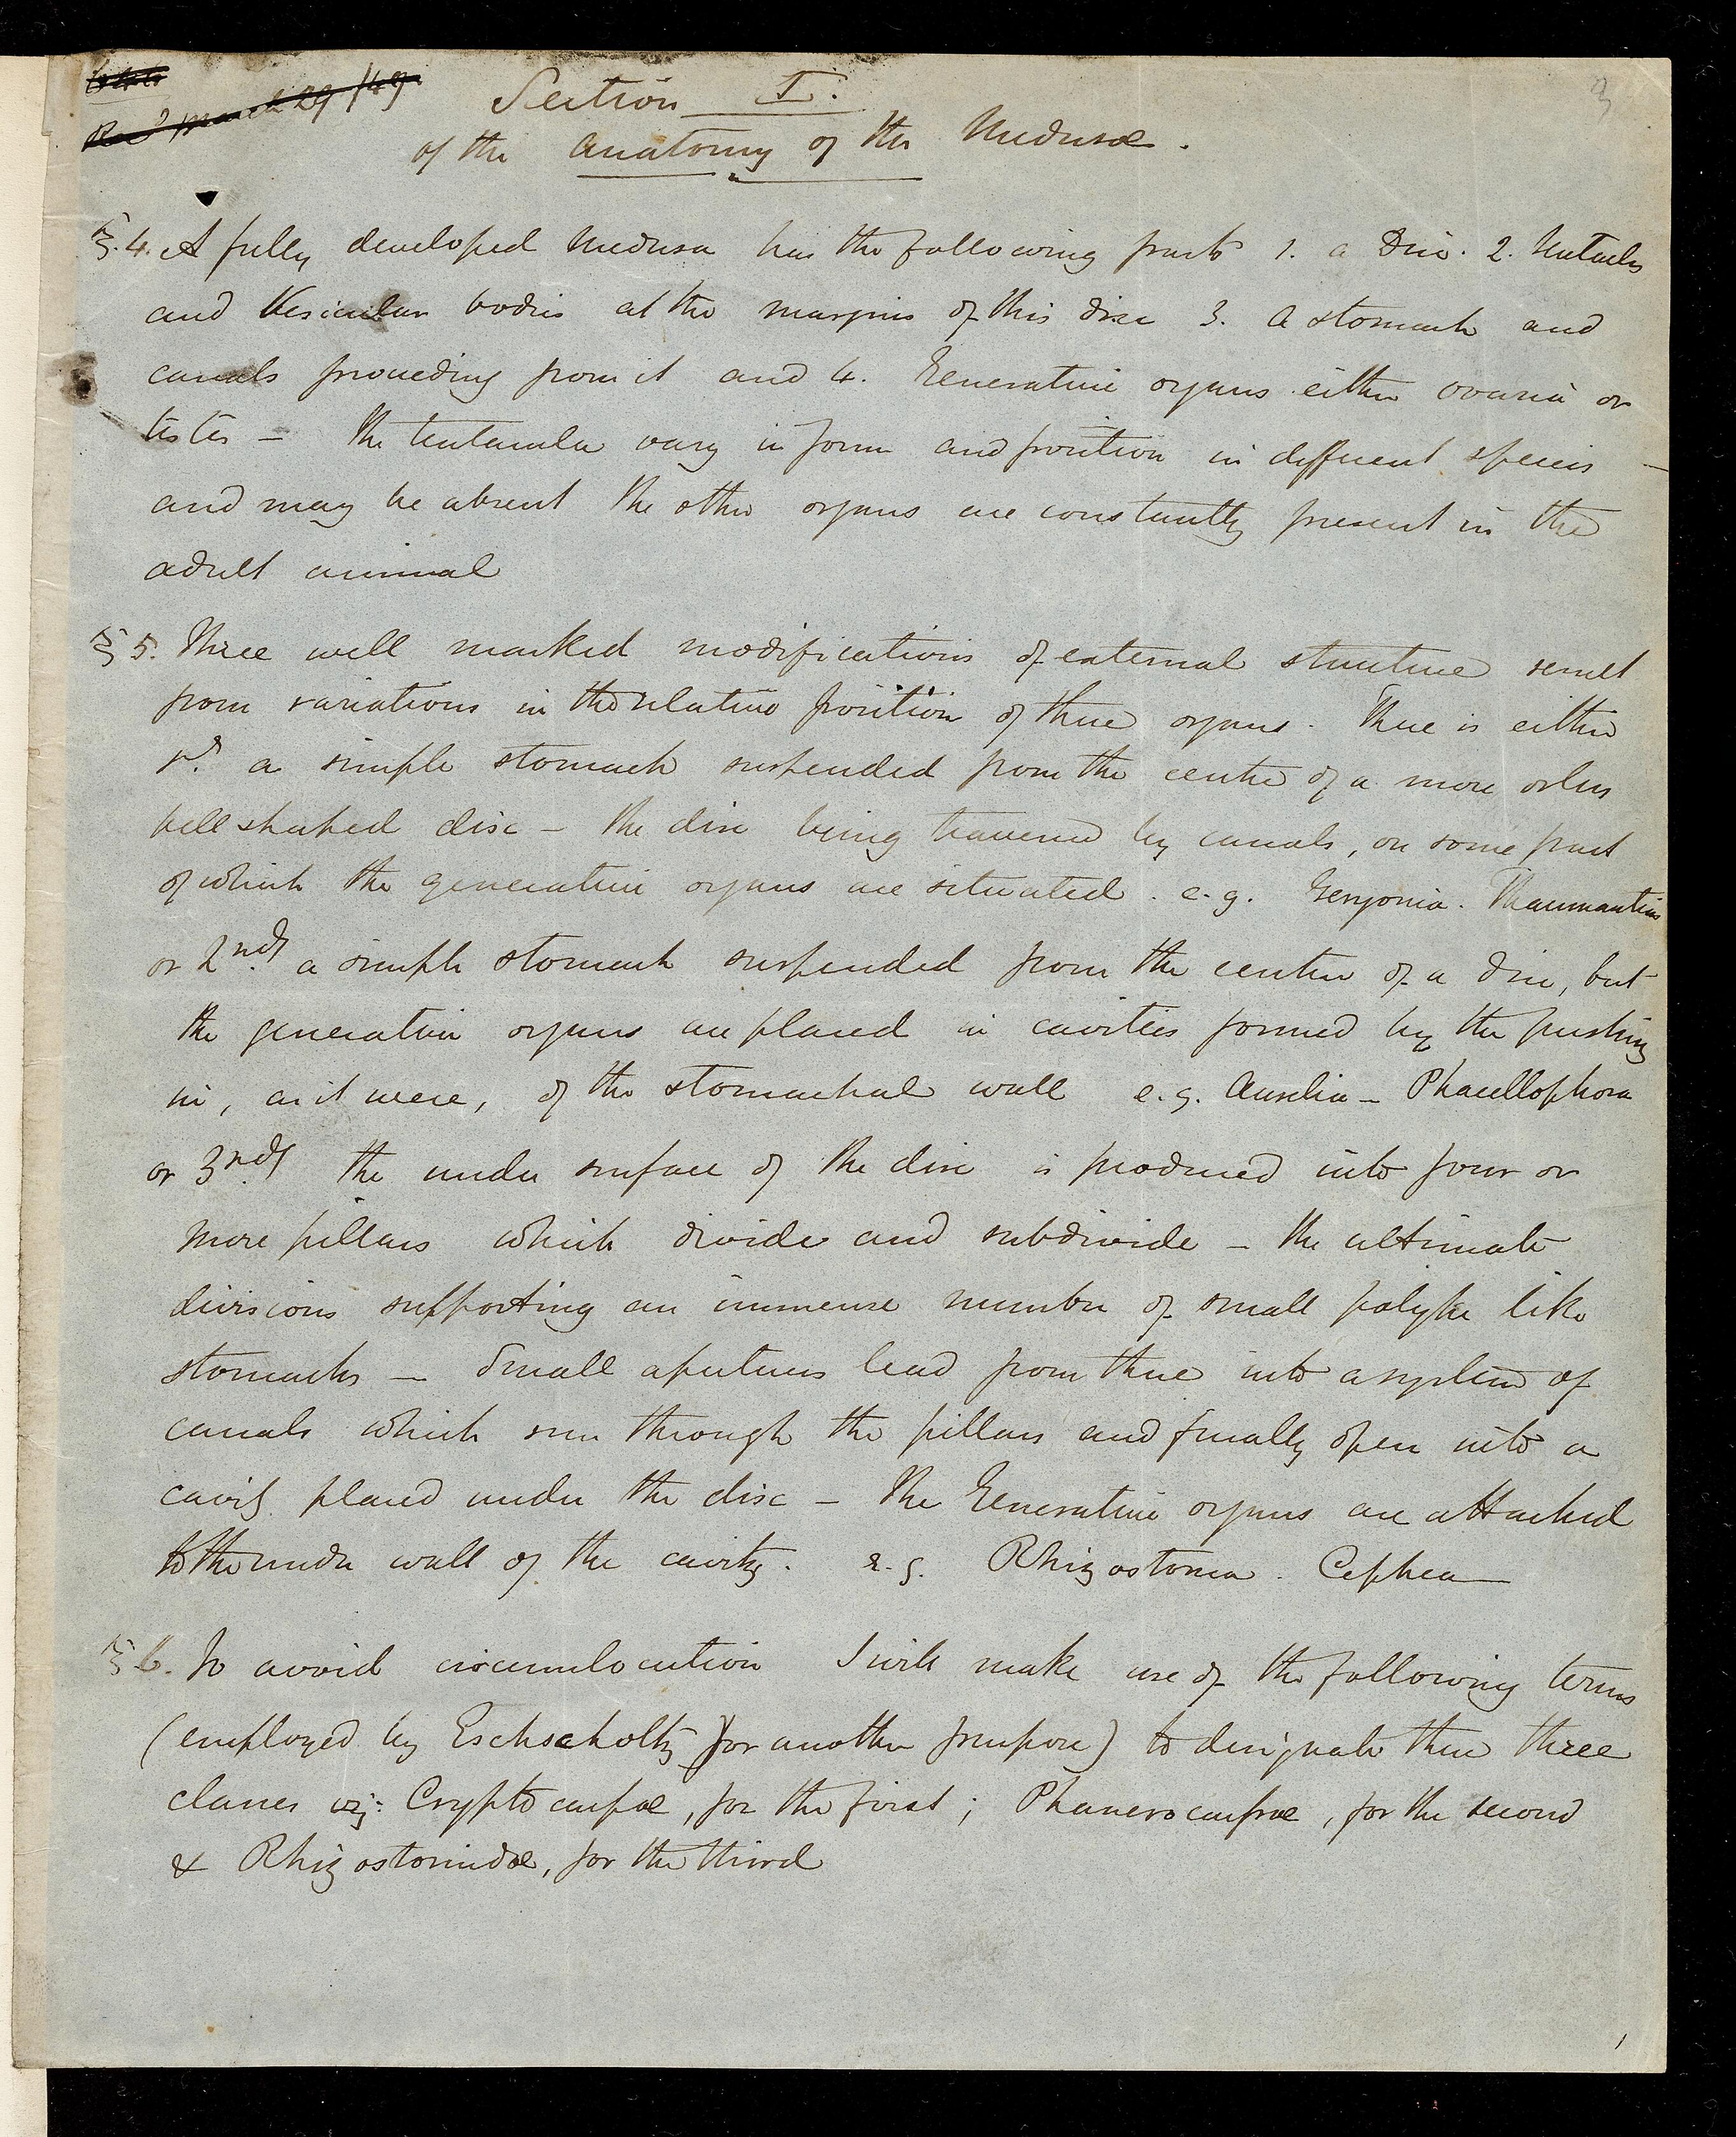 Recd March 29/49
3
Section I.
of the Anatomy of the Medusæ.
§.4. A fully developed Medusa has the following parts 1. a Disc. 2. Tentacles
and Vesicular bodies at the margins of this disc 3. A stomach and
canals proceeding from it and 4. Generative organs either ovaria or
testes – The tentacula vary in form and position in different species –
and may be absent The other organs are constantly present in the
adult animal
§5. Three well marked modifications of external structure result
from variations in the relative position of these organs. There is either
1st. a simple stomach suspended from the centre of a more or less
bell shaped disc – the disc being traversed by canals, on some part
of which the generative organs are situated. e.g. Geryonia. Thaumantias
or 2ndly. a simple stomach suspended from the centre of a disc, but
the generative organs are placed in cavities formed by the pushing
in, as it were, of the stomachal wall e.g. Aurelia – Phacellophora
or 3rdly. the under surface of the disc is produced into four or
more pillars which divide and subdivide – the ultimate
divisions supporting an immense number of small polype like
stomachs – Small apertures lead from these into a system of
canals which run through the pillars and finally open into a
cavity placed under the disc – The Generative organs are attached
to the under wall of the cavity. e.g. Rhizostoma. Cephea
§6. To avoid circumlocution I will make use of the following terms
(employed by Eschscholtz) for another purpose) to designate these three
classes viz: Cryptocarpæ, for the first; Phanerocarpæ, for the second
& Rhizostomidæ, for the third
1